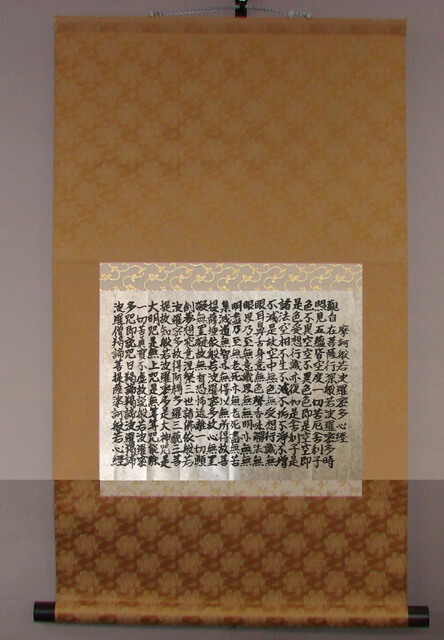 摩訶般若波羅蜜多心経
觀自在菩薩行深般若波羅蜜多時
照見五蘊皆空度一切苦厄舎利子
色不異空空不異色色即是空空即
是色受想行識亦復如是舎利子是
諸法空相不生不滅不垢不淨不增
不減是故空中無色無受想行識無
眼耳鼻舌身意無色聲香味觸法無
眼界乃至無意識界無無明亦無無
明盡乃至無老死亦無老死盡無苦
集滅道無智亦無得以無所得故菩
提薩埵依般若波羅蜜多故心無罣
礙無罣礙故無有恐怖遠離一切顛
倒夢想究竟涅槃三世諸佛依般若
波羅蜜多故得阿耨多羅三藐三菩
提故知般若波羅蜜多是大神咒是
大明咒是無上咒是無等等咒能除
一切苦真實不虛故說般若波羅蜜
多咒即說咒曰羯諦羯諦波羅羯諦
波羅僧羯諦菩提薩婆訶般若心経